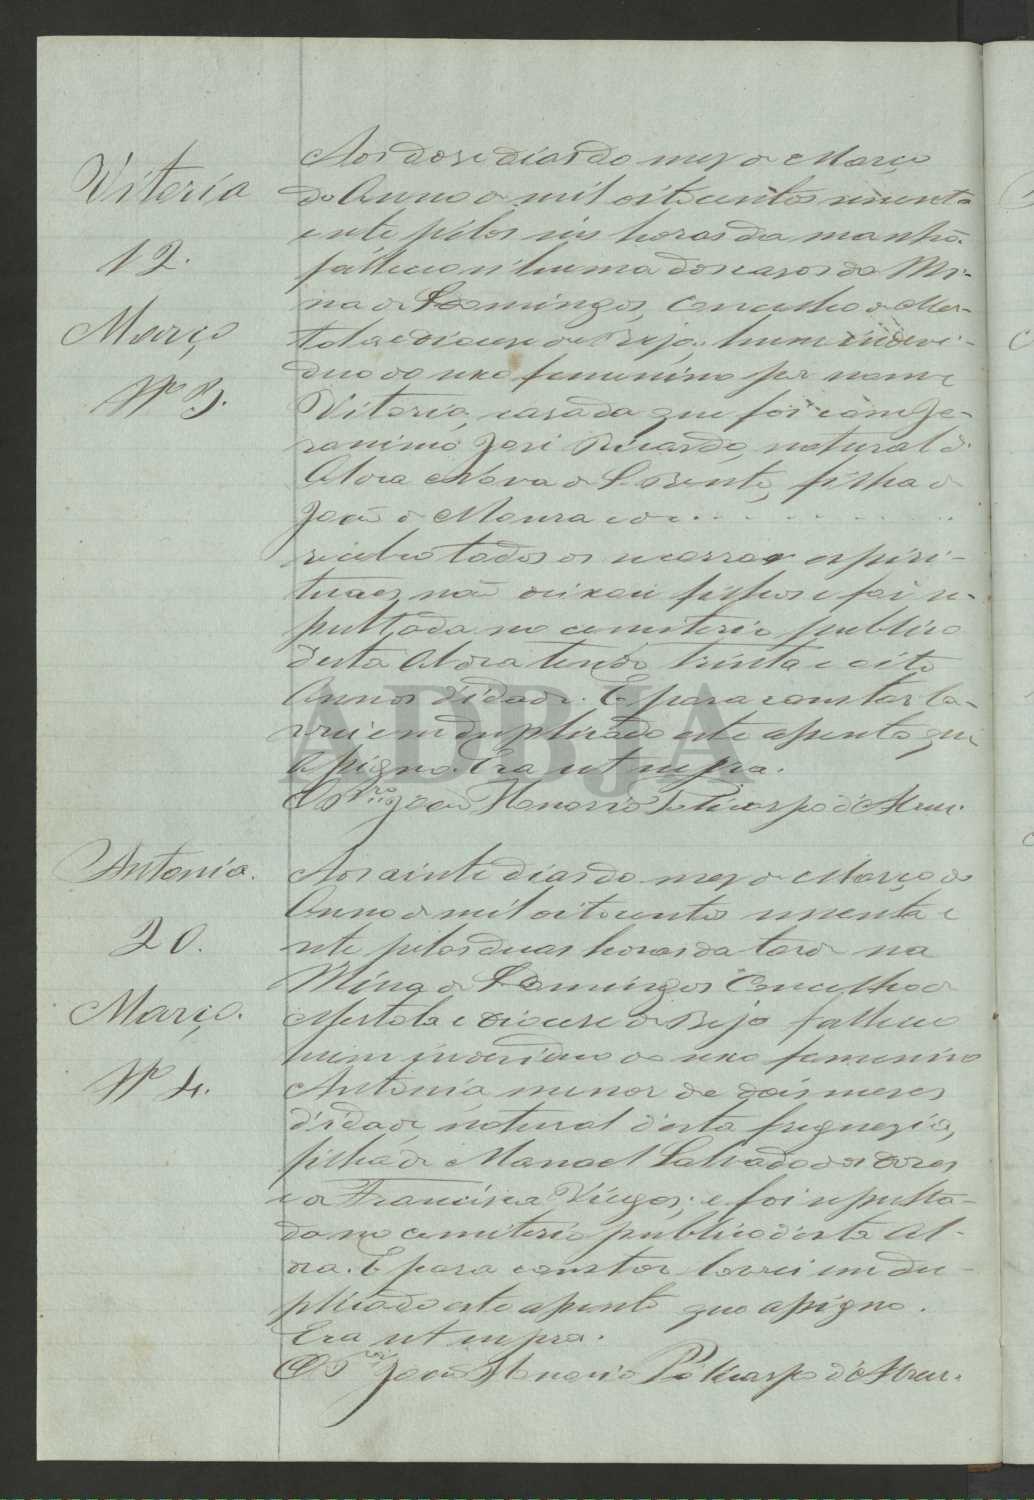 Vitoria
12.
Março
Nº 3.
Aos dose dias do mez de Março
do Anno de mil oitocentos sessenta
e sete pelas seis horas da manhã
falleceu n'huma das casas da Mi-
na de S. Domingos, Concelho de Mer-
tola e diocese de Beja, hum indevi-
duo do sexo femenino por nome
Vitoria, casada que foi com Je-
ronimo José Ricardo, natural d'
Aldea Nova de S. Bento, filha de
João de Moura e de
recebeo todos os socorros espiri-
tuaes não deixou filhos e foi se-
pultada no cemeterio publico
desta Aldea tendo trinta e oito
Annos d'idade. E para constar la-
vrei em duplicado este assento que
assigno. Era ut supra.
O Pro João Honorio Policarpo d'Abreu.
Antonia.
20.
Março.
Nº 4.
Aos vinte dias do mez de Março do
Anno de mil oitocentos sessenta e
sete pelas duas horas da tarde na
Mina de S. Domingos Concelho de
Mertola e diocese de Beja falleceo
hum individuo do sexo femenino
Antonia, menor de dois meses
d'idade, natural d'esta freguezia,
filha de Manoel Salvador das Dores
e de Francisca Viegas; e foi sepulta-
da no cemiterio publico d'esta Al-
dea. E para constar lavrei em du-
plicado este assento que assigno.
Era ut supra.
O Pro João Honorio Policarpo d'Abreu.
ADBJA